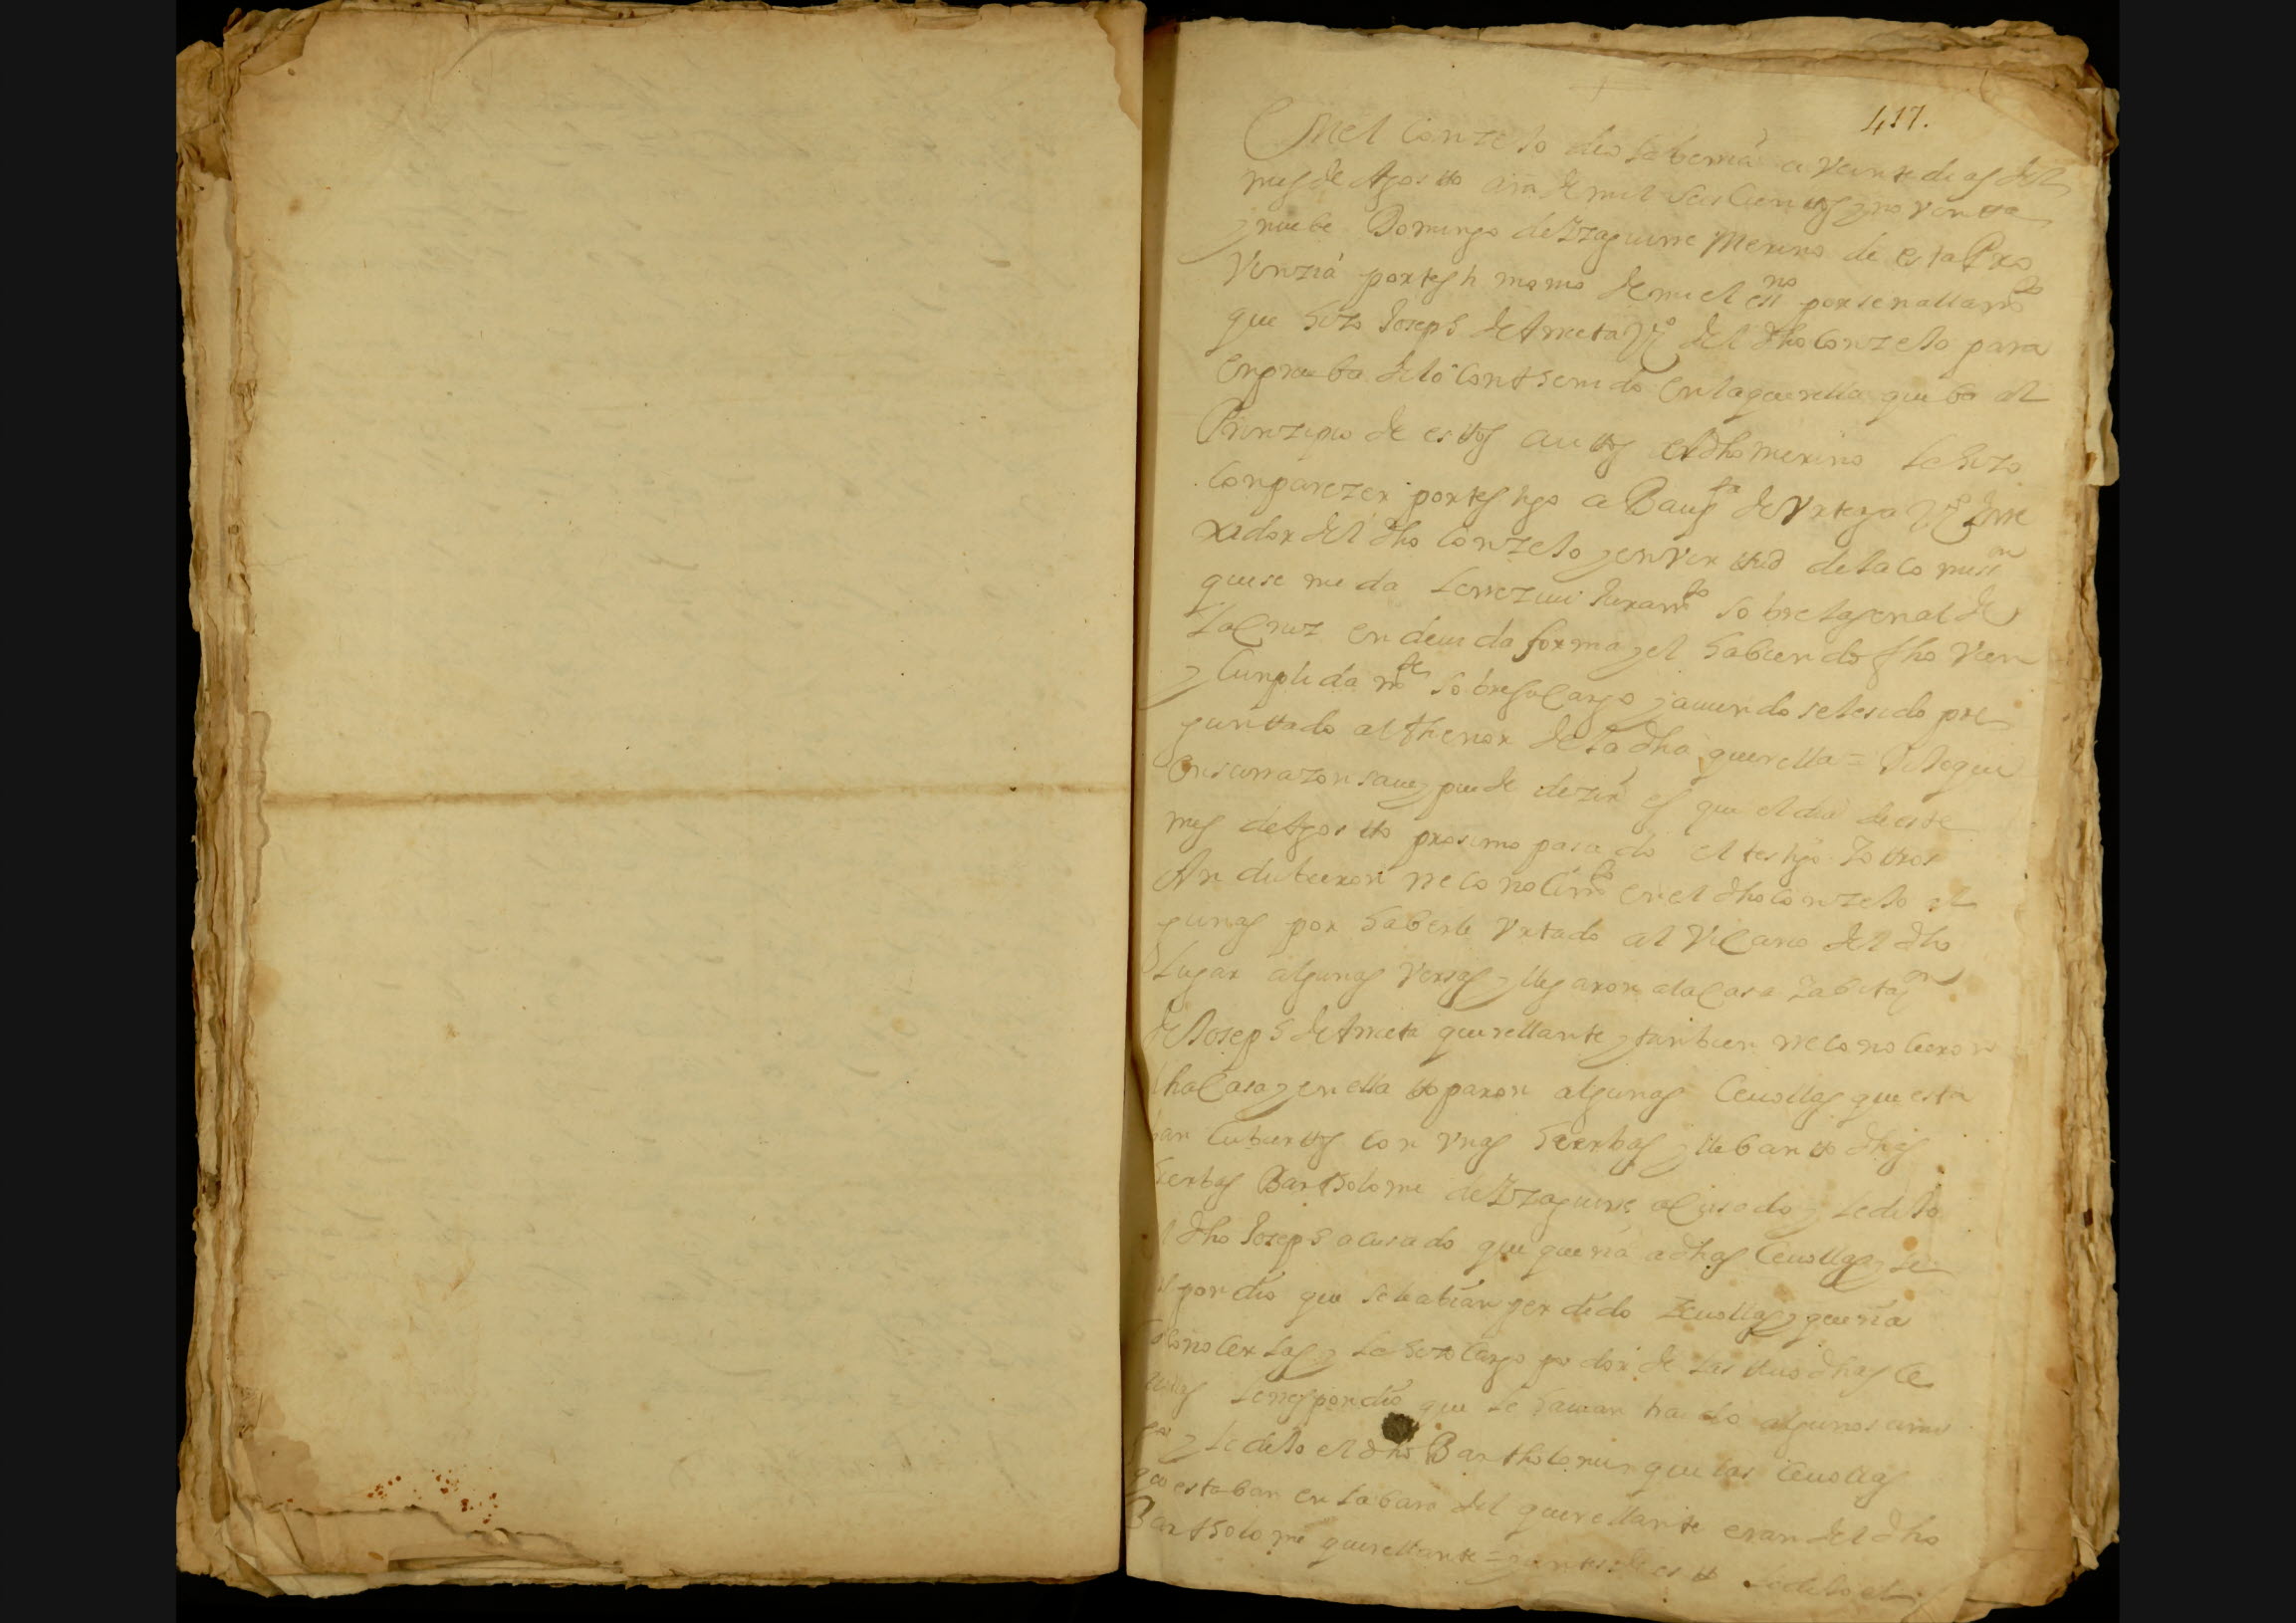 417.
En el Conzeio de Labernia a Veinte dias del
mes de Agostto año de mil seiscienttos y noventta
y nuebe Domingo de Yzaguirre Merino de esta Pro
vinzia por testimonio de mi el essno por señallamto
que hizo Joseph de Arrieta Vzo del dho Conzeio para
en prueba de lo conthenido en la querella que ba al
Prinzipio de esttos auttos el dho merino le hizo
comparezer por testigo a Bauta de Urteaga Vzo
rador del dho Conzeio y en virttud de la comission
que se me da le rrezivi Juramto sobre la señal de
la Cruz en deuida forma y el habiendo fho vien
y cumplidamte so bre su cargo y auiendosele sido pre
gunttado al thenor de la dha querella = Dijo que
en su razon saue y puede dezir es que el dia de este
mes de Agostto proximo pasado el testigo y ottros
An dubieron rreconocimto en el dho Conzeio al
gunas por haberle Urtado al Vicario del dho
Lugar algunas Versas y llegaron a la Casa habitazon
de Joseph de Arrieta querellante y tanbien rreconocieron
dha Casa y en ella ttoparon algunas Ceuollas que esta
ban Cubierttas con Unas hierbas y llebantto dhas
hierbas Bartholome de Yzaguirre acusado y le dijo
el dho Joseph acusado que queria a dhas Ceuollas y le
rrespondio que se le abian perdido Zeuollas y queria
rreconocerlas y le hizo Cargo por dor de las ttuo dhas Ce
uollas le rrespondio que le hauian traido algunos ami
gos y le dijo el dho Bartholome que las Ceuollas
que estaban en la casa del querellante eran del dho
Bartholome querellante = y antes de estto le dijo el